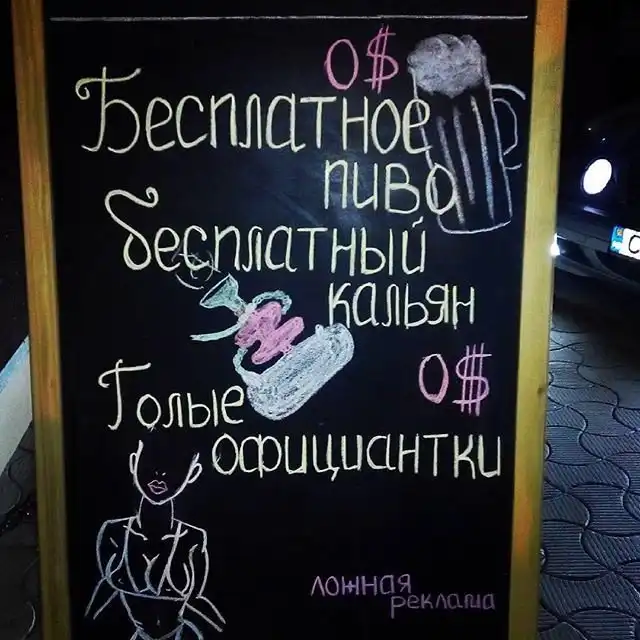 0$
Бесплатное
пиво
бесплатный
кальян
0$
Голые
официантки
ложная
реклама